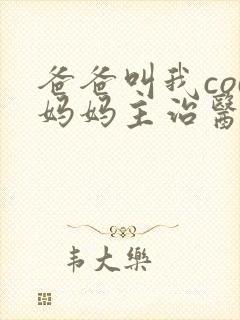 爸爸叫我coo
妈妈主治醫
韦大樂